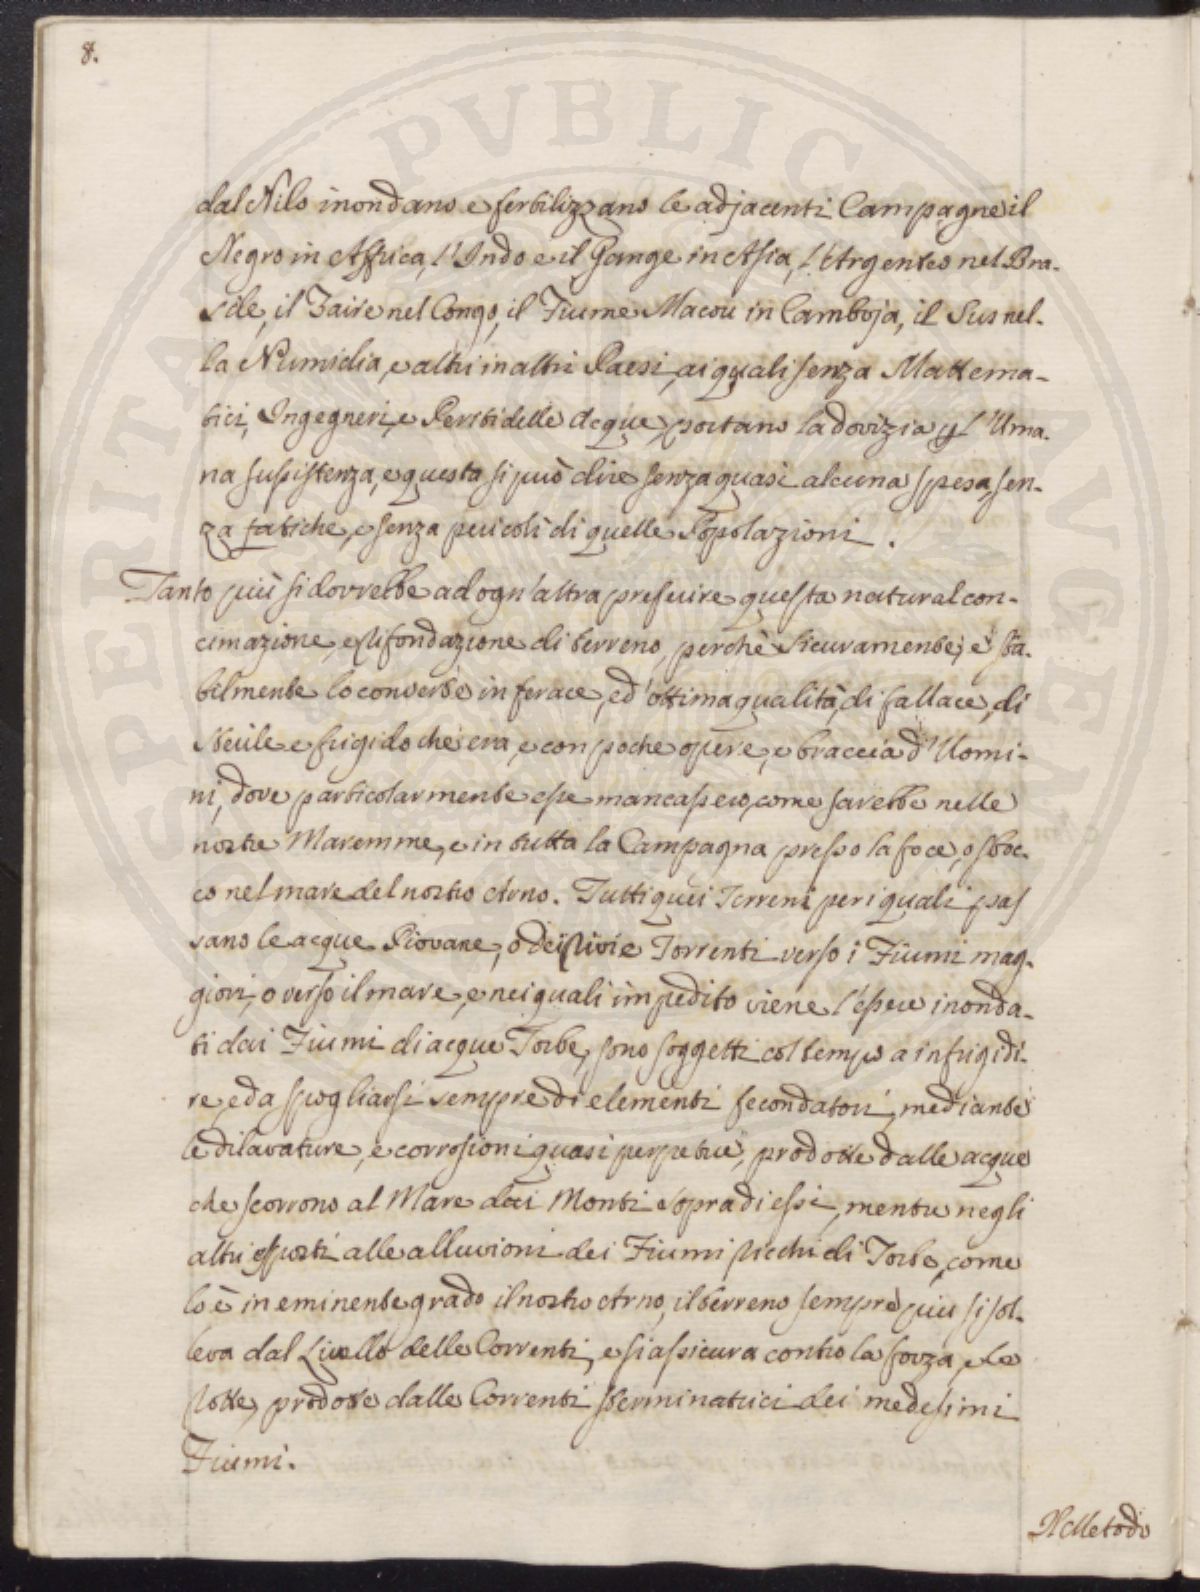 8.
dal Nilo inondano e fertilizzano le adjacenti Campagne il
Negro in Affrica, l'Indo e il Gange in Asia, l'Argenteo nel Bra-
sile, il Zaire nel Congo, il Fiume Macou in Camboja, il Sus nel-
la Numidia, e altri in altri Paesi, ai quali senza Mattema-
tici, Ingegneri, e Periti delle Acque, portano la dovizia p l'Uma-
na sussistenza, e questa si può dire senza quasi alcuna spesa, sen-
za fatiche, e senza pericoli di quelle Popolazioni.
Tanto più si dovrebbe ad ogn'altra preferire questa natural con-
cimazione, e rifondazione di terreno, perchè sicuramente, e sta-
bilmente lo converte in ferace, ed ottima qualità, di fallace, di
sterile e frigido che era, e con poche opere, e braccia d'Uomi-
ni, dove particolarmente esse mancassero, come sarebbe nelle
nostre Maremme, e in tutta la Campagna presso la foce, o sboc-
co nel mare del nostro Arno. Tutti quei Terreni per i quali pas
sano le acque Piovane, o dei Rivi e Torrenti verso i Fiumi mag-
giori, o verso il mare, e nei quali impedito viene l'essere inonda-
ti dai Fiumi di acque Torbe, sono soggetti col tempo a infrigidi-
re, ed a spogliarsi sempre di elementi fecondatori, mediante
le dilavature, e corrosioni quasi perpetue, prodotte dalle acque
che scorrono al Mare dai Monti sopra di essi, mentre negli
altri esposti alle alluvioni dei Fiumi ricchi di Torbe, come
lo è in eminente grado il nostro Arno, il terreno sempre piu si sol-
leva dal Livello delle Correnti, e si assicura contro la forza, e le
rotte, prodotte dalle Correnti sterminatrici dei medesimi
Fiumi.
Il Metodo
PERITAT PVBLICA AVGEN